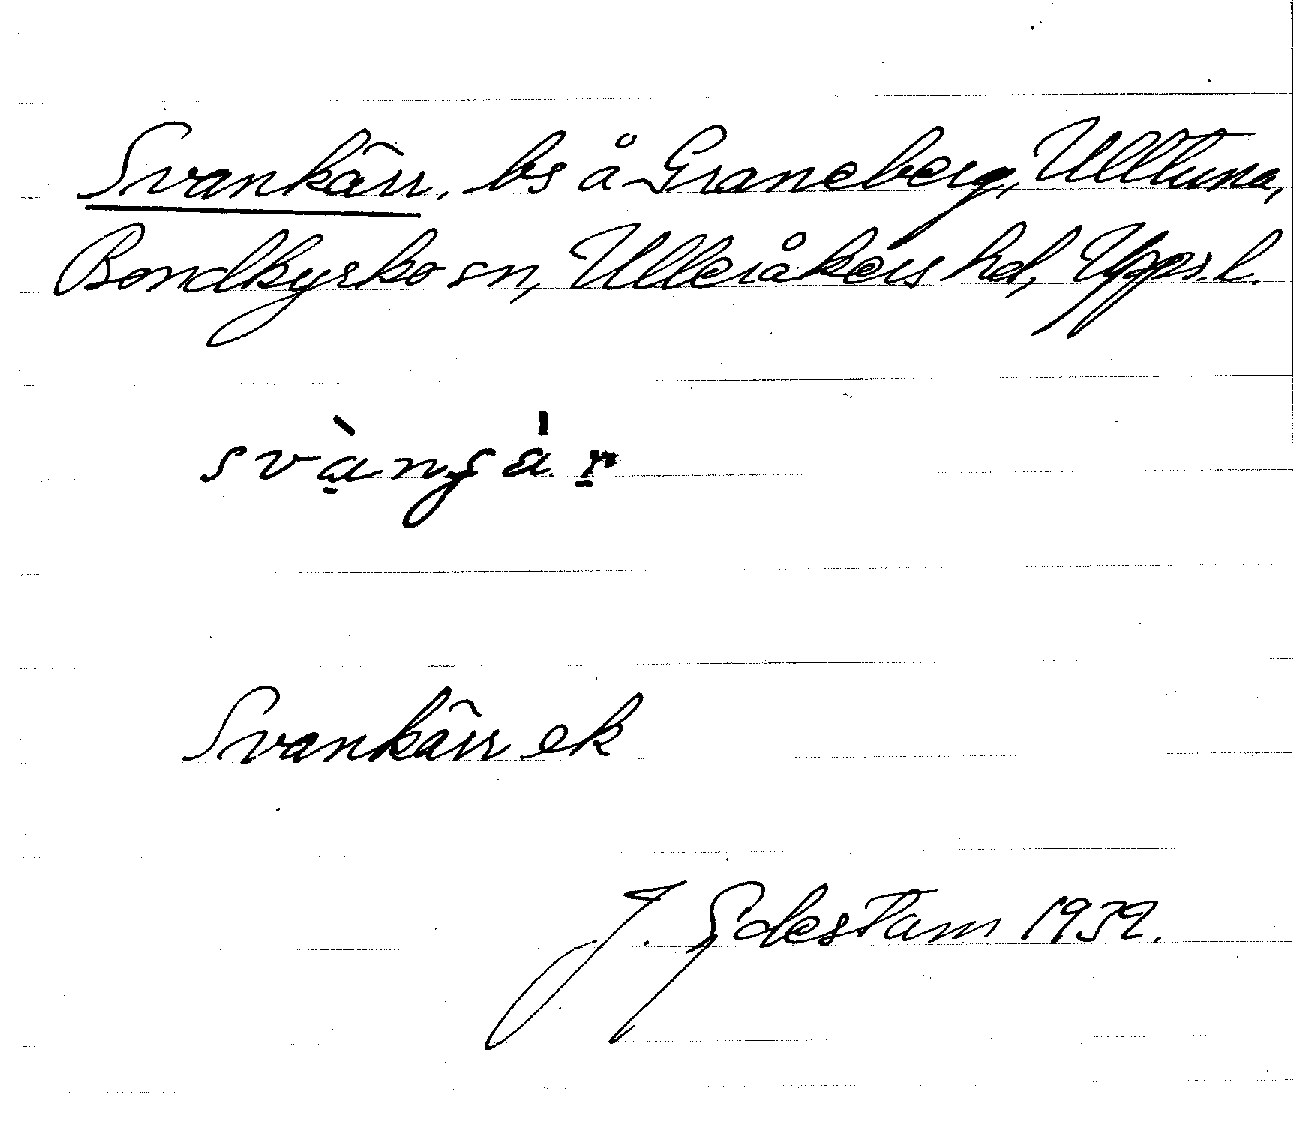 Svankärr, bs å Graneberg, Ulltuna,
Bondkyrko sn, Ulleråkers hd, Uppsl.
svàngä́r
Svankärr ek
J. Götlestam 1939.